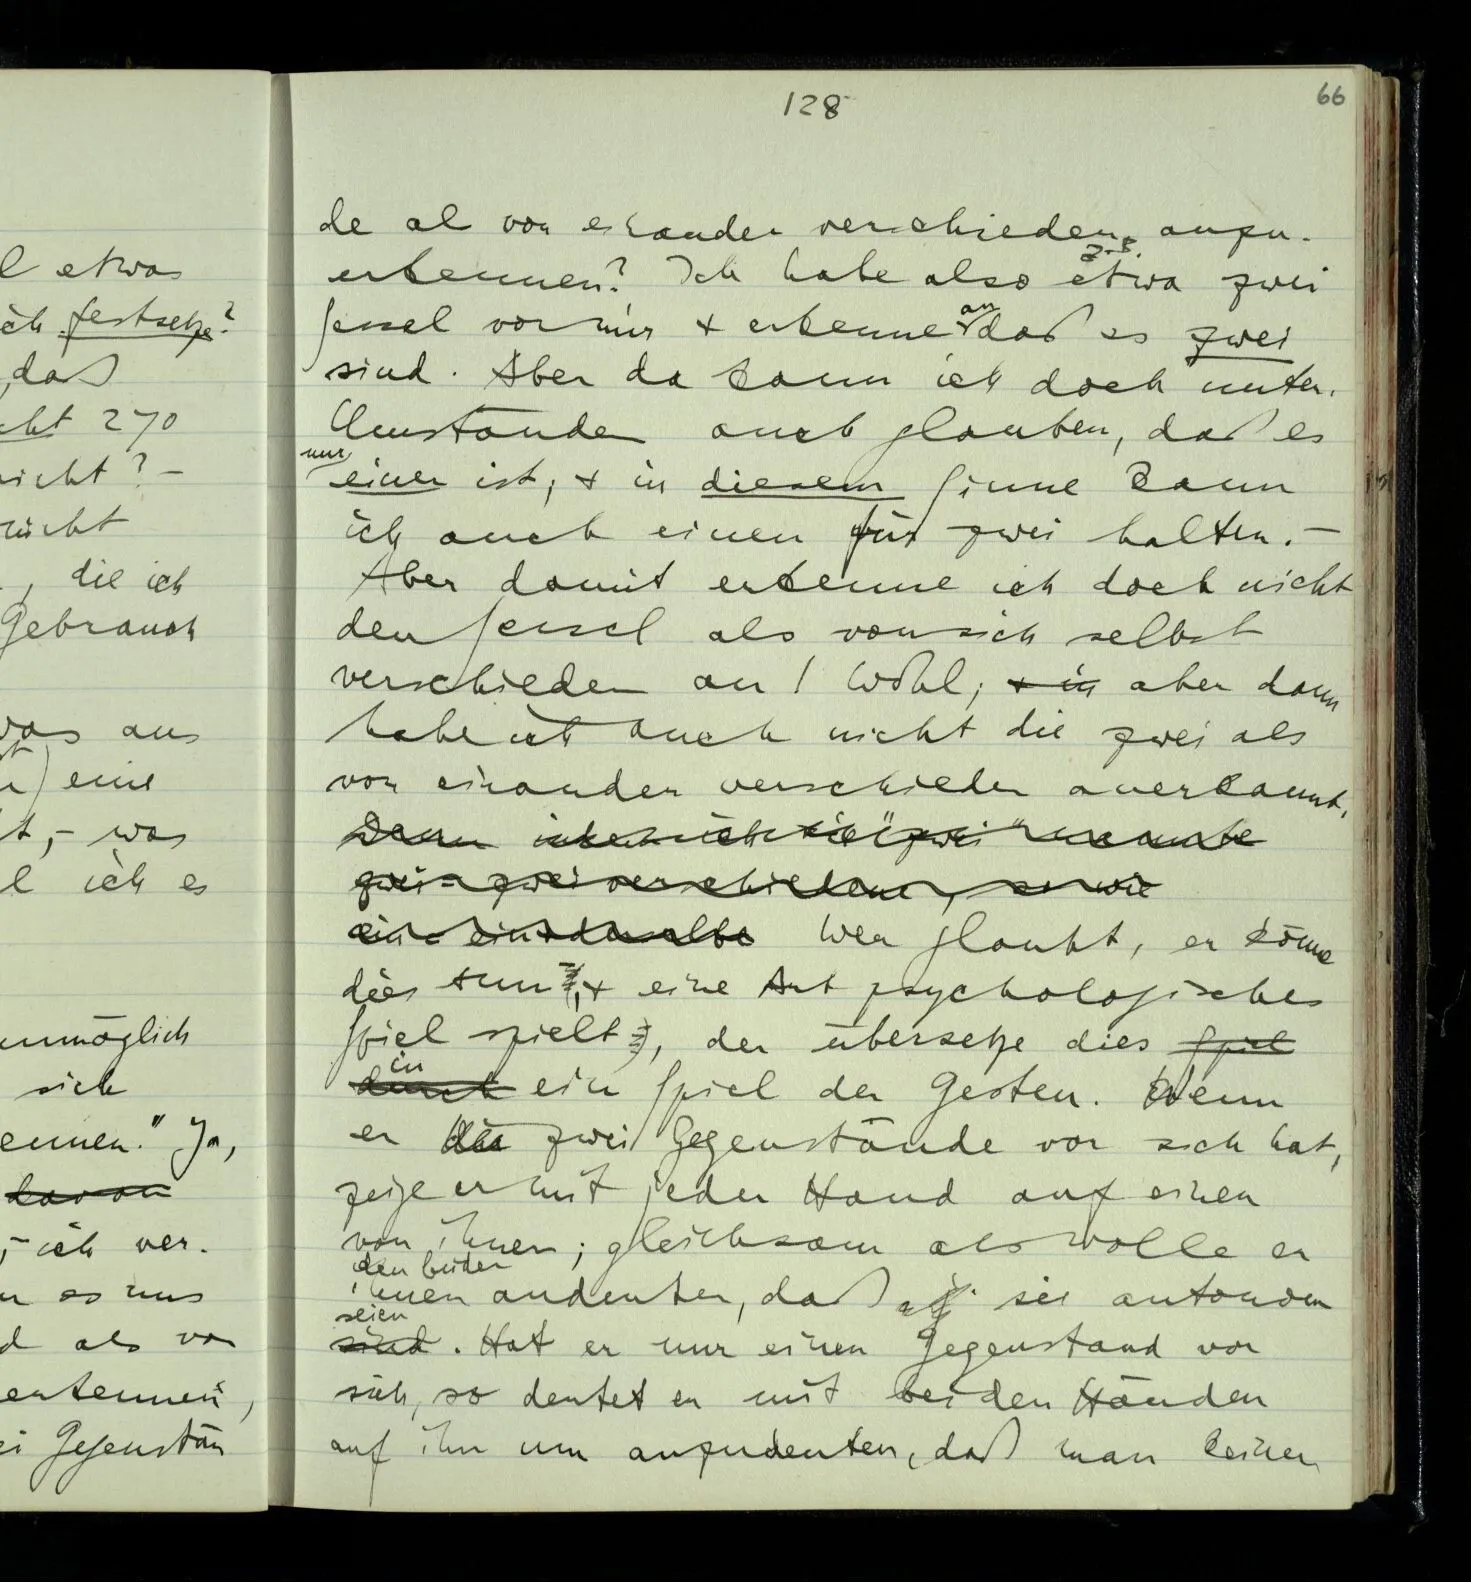 l etwas
ich festsetze?
, daß
cht 270
nicht? –
nicht
, die ich
Gebrauch
was aus
eine
t, – was
l ich es
unmöglich
sich
ennen." Ja,
davon
, – ich ver-
es uns
d als von
erkennen,
ei Gegenstän
128
66
de als von einander verschieden anzu-
z.B.
erkennen? Ich habe also etwa zwei
an
Sessel vor mir & erkenne daß es zwei
sind. Aber da kann ich doch unter
Umständen auch glauben, daß es
nur
einer ist, & in diesem Sinne kann
ich auch einen für zwei halten. –
Aber damit erkenne ich doch nicht
den Sessel als von sich selbst
verschieden an! Wohl; & in aber dann
habe ich auch nicht die zwei als
von einander verschieden anerkannt.
Denn ich die "zwei"
zwei zwei verschiedene, so wie
ein ein & derselbe Wer glaubt, er könne
dies tun, & eine Art psychologisches
Spiel spielt, der übersetze dies Spiel
in
durch ein Spiel der Gesten. Wenn
er die zwei Gegenstände vor sich hat,
zeige er mit jeder Hand auf einen
von ihnen; gleichsam als wolle er
den beiden
ihnen andeuten, daß sie autonom
seien
sind. Hat er nur einen Gegenstand vor
sich, so deutet er mit beiden Händen
auf ihn um anzudeuten, daß man keinen